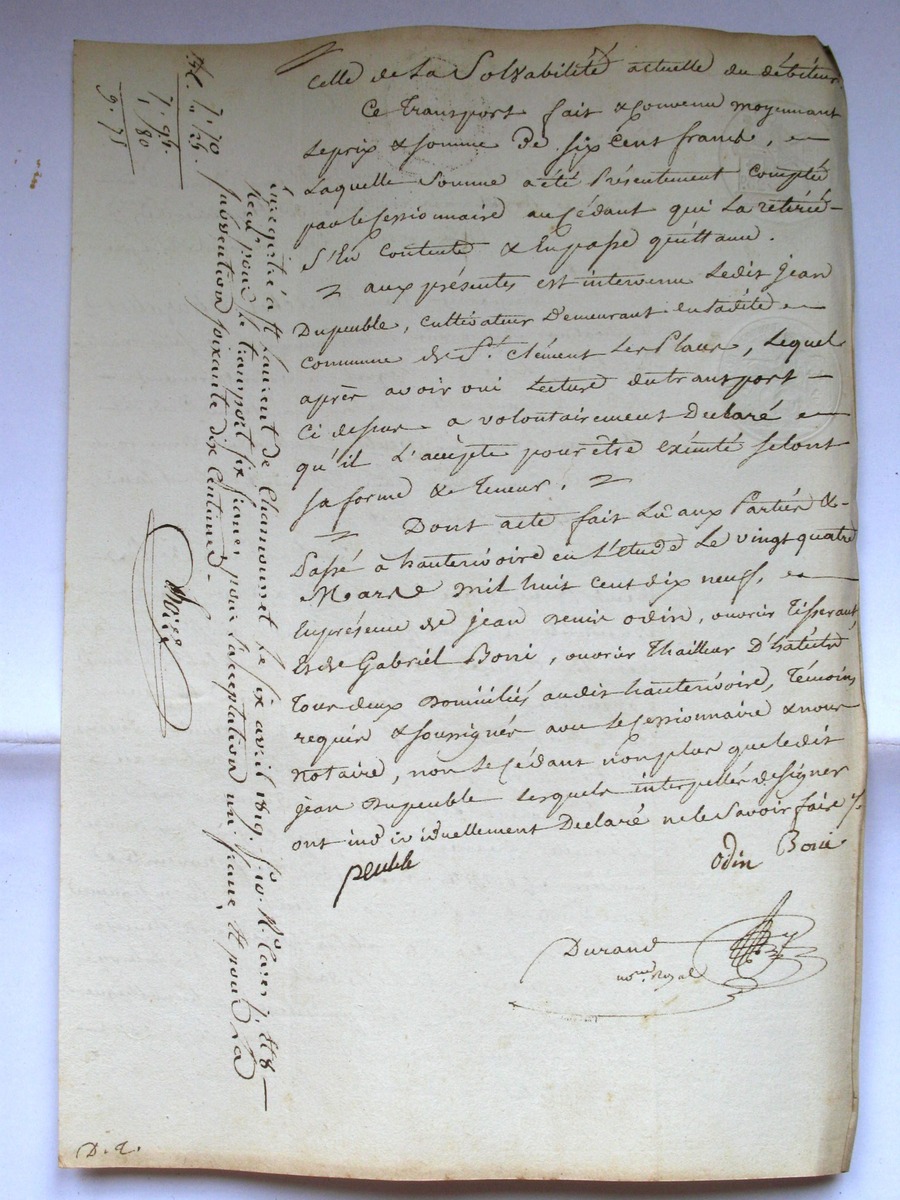 Celle de La Solvabilité actuelle du débiteur.
Ce Transport fait & Convenu moyennant
Le prix & somme De six cent francs, en
Laquelle Somme a été Présentement Comptée
par le Cessionnaire au Cédant qui La retirée
S'En Contente & En passe quittance.
aux présentes est intervenu Ledit jean
Dupeuble, cultivateur Demeurant en Ladite
commune de St. Clément Les Places, Lequel
après avoir oui Lecture du transport
Ci dessus a volontairement Declaré
qu'il L'accepte pour être exécuté selont
sa forme & Teneur.
Dont acte fait Lû aux Parties &
Passé a hauterivoire en L'étude Le vingt quatre
Mars mil huit cent dix neuf, en
La présence de jean Denis odin, ouvrier Tisserant
Et de Gabriel Boni, ouvrier Thailleur D'habits
Tous deux Domiciliés audit hauterivoire, Témoins
requis & soussignés avec Le Cessionnaire & nous
Notaire, non Le Cédant non plus que Ledit
jean Dupeuble Lesquels interpellés de signer
ont individuellement Declaré ne le Savoir faire
peuble
odin Boni
Durand
Royal
Enregistré à St Laurent de Chamousset Le six avril 1819. fo.
Reçu pour Le transport six francs pour L'acceptation un franc et pour La
Subvention soixante dix Centimes.
7. 70
1. 80
9. 75
D. 2.